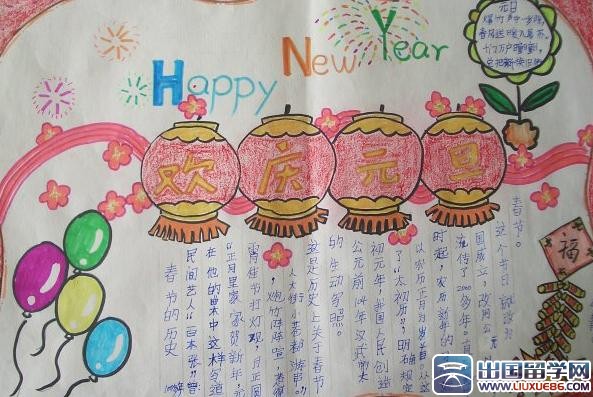 Happy New Year
元日
爆竹声中一岁除,
春风送暖入屠苏。
千门万户曈曈日,
总把新桃换旧符。
欢庆元旦
福
春节。
这个节日
国成立,改用公元
流传了2000多年。
时起,农历新年的
以农历正月为岁首。从这
了"太初历",明确规定
初元年,我国人民创造
公元前104年汉武帝太
的生动写照。
这是历史上关于春节
人大街小巷都游串。"
宵佳节打灯观,月正圆
"正月里家家贺新年,元
在他的曲中这样写道
民间艺人"百本张"曾
春节的历史
出国留学网
www.liuxue86.com